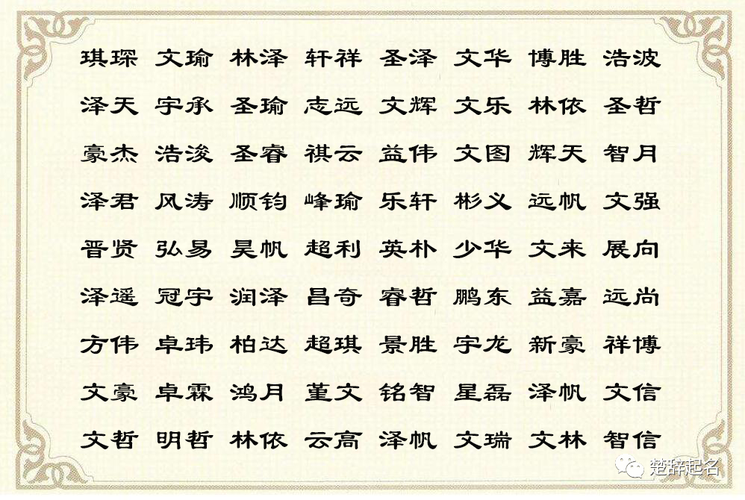 琪琛 文瑜 林泽 轩祥 圣泽 文华 博胜 浩波
泽天 宇承 圣瑜 志远 文辉 文乐 林依 圣哲
豪杰 浩浚 圣睿 祺云 益伟 文图 辉天 智月
泽君 风涛 顺钧 峰瑜 乐轩 彬义 远帆 文强
晋贤 弘易 昊帆 超利 英朴 少华 文来 展向
泽遥 冠宇 润泽 昌奇 睿哲 鹏东 益嘉 远尚
方伟 卓玮 柏达 超琪 景胜 宇龙 新豪 祥博
文豪 卓霖 鸿月 堇文 铭智 星磊 泽帆 文信
文哲 明哲 林依 云高 泽帆 文瑞 文林 智信
楚辞起名